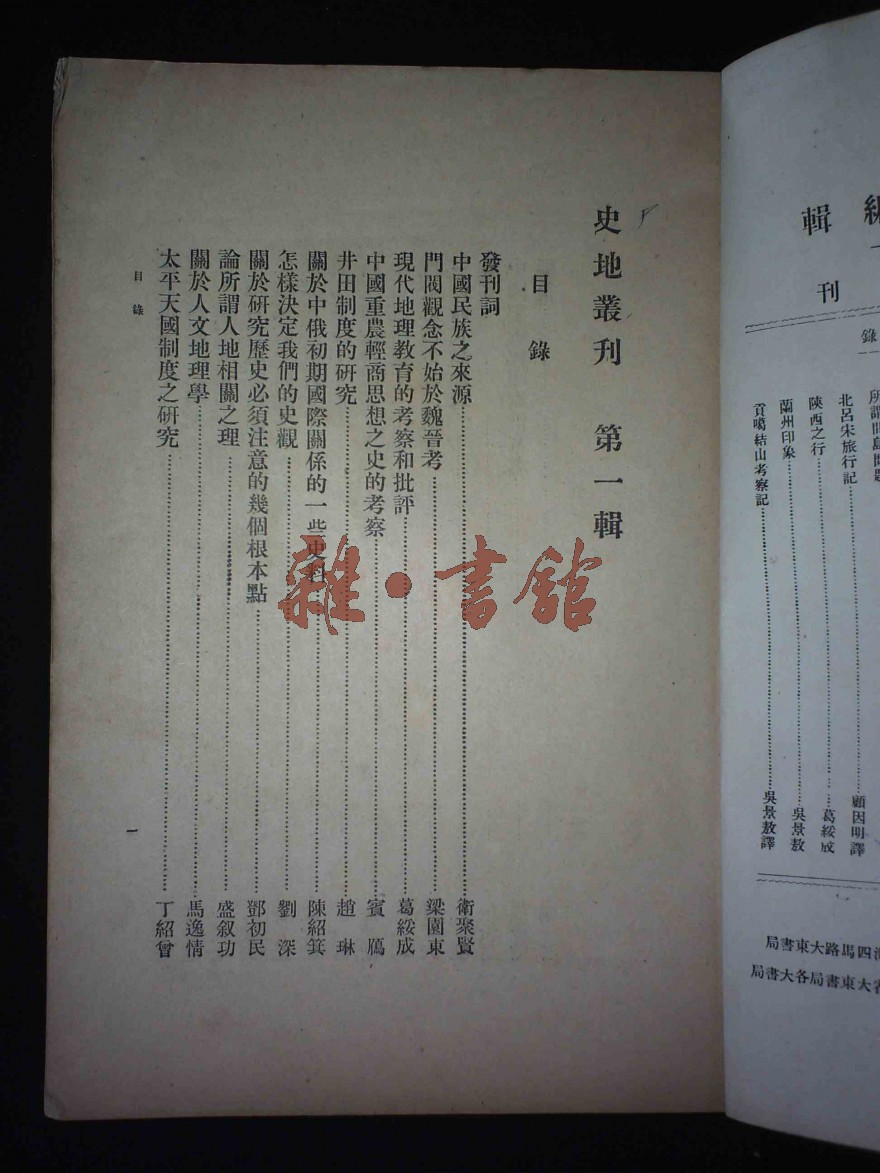 編
輯
刊
錄
所謂間島問題
北呂宋旅行記 顧因明譯
陝西之行 葛綏成
蘭州印象 吳景敖
貢噶結山考察記 吳景敖譯
四馬路大東書局
大東書局各大書局
史地叢刊 第一輯
目錄
發刊詞
中國民族之來源 衛聚賢
門閥觀念不始於魏晉考 梁園東
現代地理教育的考察和批評 葛綏成
中國重農輕商思想之史的考察 賓鴈
井田制度的研究 趙琳
關於中俄初期國際關係的一些史料 陳紹箕
怎樣決定我們的史觀 劉深
關於研究歷史必須注意的幾個根本點 鄧初民
論所謂人地相關之理 盛叙功
關於人文地理學 馬逸情
太平天國制度之研究 丁紹曾
目錄
一
雜·書館